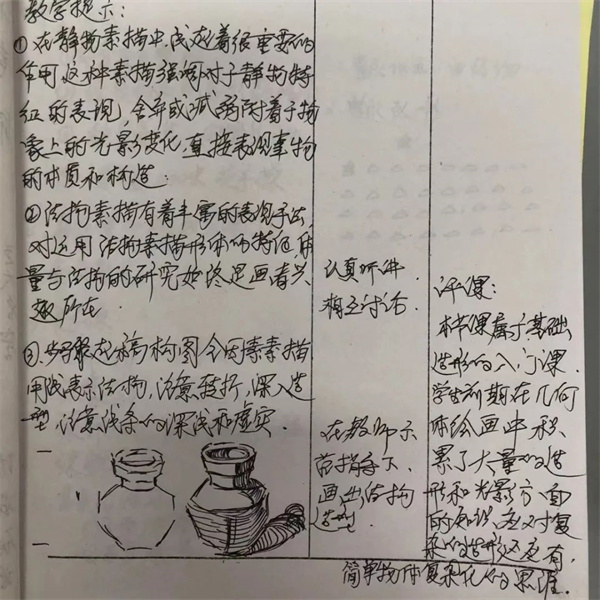 教学提示：
①在静物素描中，成立着很重要的
作用，这种素描强调对于静物特
征的表现，舍弃或减弱附着于物
象上的光影变化，直接表现事物
的体质和构造；
②结构素描有着丰富的表现手法，
对运用结构素描形体的特征、体
量与结构的研究始终是画者兴
趣所在
③.起稿构图
用线表示结构，注意转折，深入造
型，注意线条的深浅和虚实.
认真听讲
相互讨论
在教师示
范指导下，
画出结构
造型
评课：
本节课属于基础
造形的入门课.
学生前期在几何
体绘画中积
累了大量的造
形和光影方面
的知识，应对复
杂的造形还应有，
简单物体复杂化的思维.